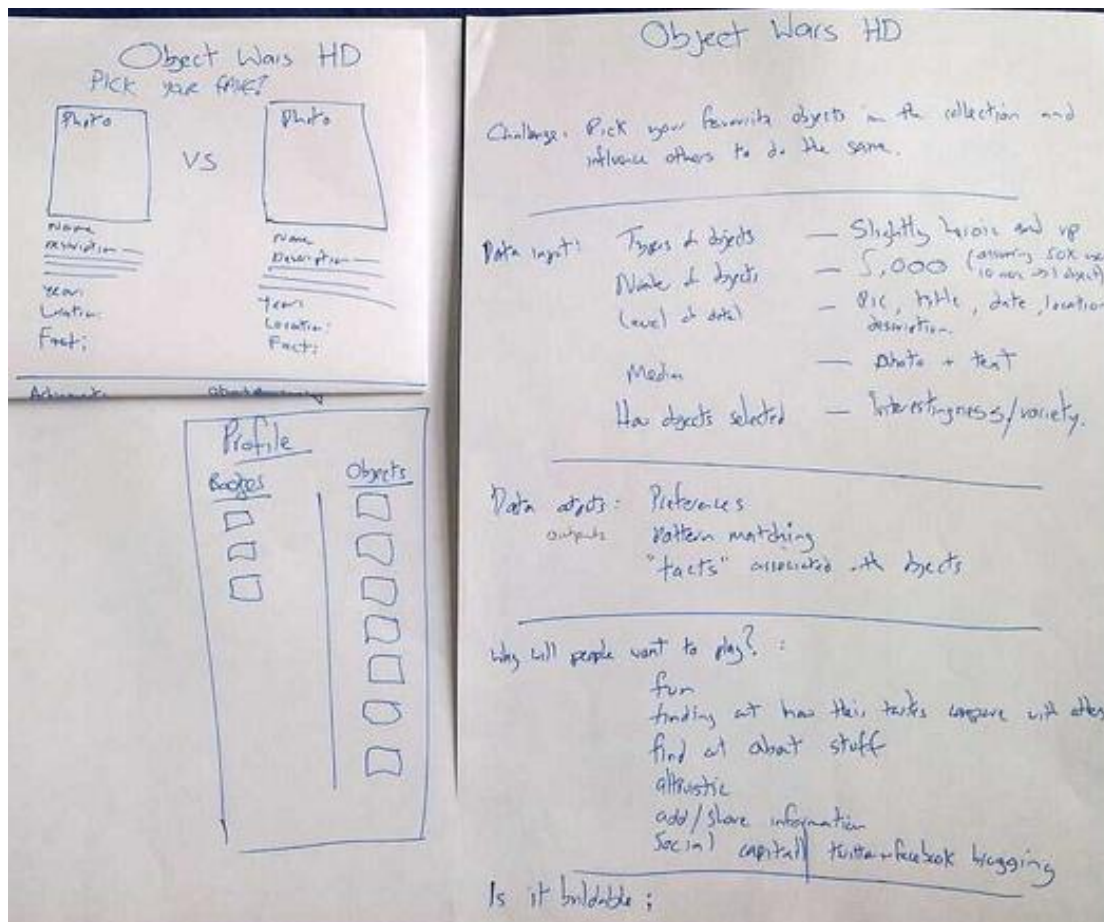 Object Wars HD
Pick your fave?
Photo
VS
Photo
Name
Description
Year:
Location:
Fact:
Name
Description
Year:
Location:
Fact:
Profile
Badges
Objects
Object Wars HD
Challenge: Pick your favorite objects in the collection and
influence others to do the same.
Data input: Types of objects — Slightly heroic and up
Number of objects — 5,000 (assuming 50K
Level of detail — Pic, title, date, location
description.
Media — photo + text
How objects selected — Interestingness/variety.
Data outputs: Preferences
outputs
Pattern matching
"facts" associated with objects
Why will people want to play? :
fun
finding out how their tastes compare with others
find out about stuff
altruistic
add/share information
Social capital twitter + facebook bragging
Is it buildable :